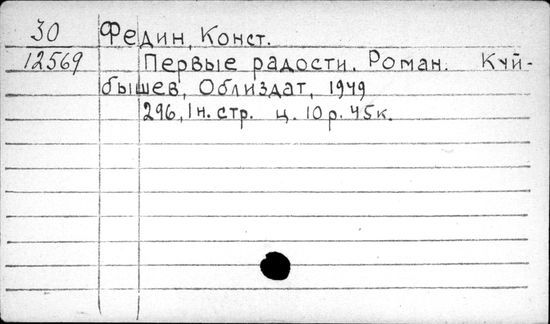 30 Федин, Конст.
12569 Первые радости. Роман. Куй-
бышев, Облиздат, 1949
296, 1 н. стр. ц. 10 р. 45 к.